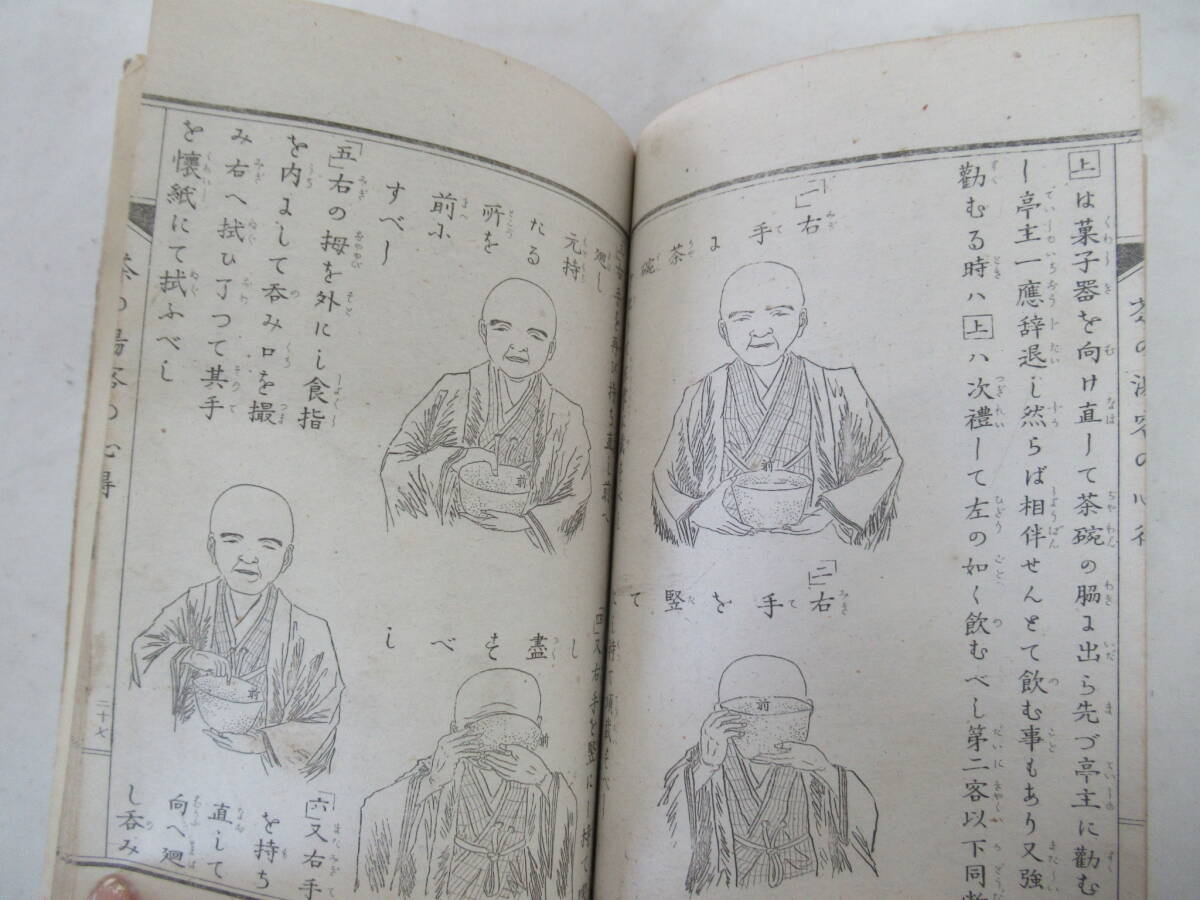 上は菓子器を向け直して茶碗の脇よ出ら先づ亭主に勸む
し亭主一應辞退し然らば相伴せんとて飲む事もあり又強
勸むる時ハ上ハ次禮して左の如く飲むべし第二客以下同
茶の湯客の心得
一右
手よ
茶碗
前
二右
手を
竪て
前
廻し
元持
たる
所を
前ふ
すべし
前
し盡すべし
四又右手を竪に
前
五右の拇を外にし食指
を内よして呑み口を撮
み右へ拭ひ了つて其手
を懐紙にて拭ふべし
前
六又右手
を持ち
直して
向へ廻
し呑み
茶の湯客の心得
二十七